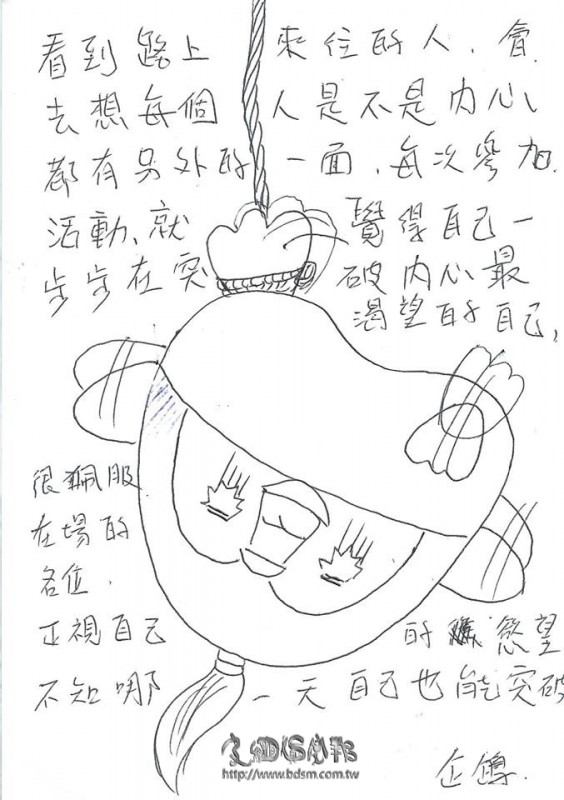 看到路上 來往的人，會
去想每個 人是不是內心
都有另外的 一面，每次參加
活動、就 覺得自己一
步步在突 破內心最
渴望的自己，
很佩服
在場的
各位．
正視自己 的 慾望
不知哪 一天自己也能突破
企鵝．
http://www.bdsm.com.tw